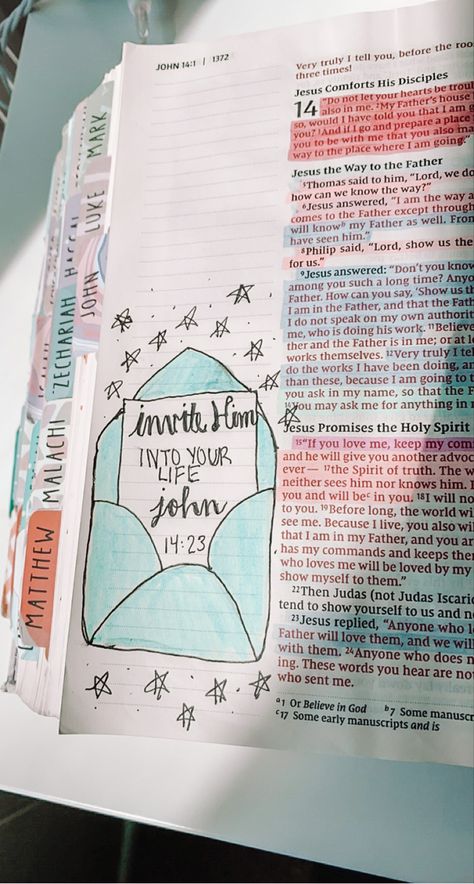 JOHN 14:1 | 1372
MARK
LUKE
HAGGAI
JOHN
ZECHARIAH
MALACHI
MATTHEW
invite Him
INTO YOUR
LIFE
john
14:23
Very truly I tell you, before the roo
three times!
Jesus Comforts His Disciples
14 "Do not let your hearts be trou
also in me. ²My Father's house
so, would I have told you that I am g
you? ³And if I go and prepare a place
you to be with me that you also m
way to the place where I am going."
Jesus the Way to the Father
⁵Thomas said to him, "Lord, we do
how can we know the way?"
⁶Jesus answered, "I am the way a
comes to the Father except through
will know ᵇ my Father as well. From
have seen him."
⁸Philip said, "Lord, show us the
for us."
⁹Jesus answered: "Don't you know
among you such a long time? Anyo
Father. How can you say, 'Show us th
I am in the Father, and that the Fat
I do not speak on my own authorit
me, who is doing his work. ¹¹Believe
ther and the Father is in me; or at le
works themselves. ¹²Very truly I te
do the works I have been doing, an
than these, because I am going to t
you ask in my name, so that the Fa
¹⁴You may ask me for anything in m
Jesus Promises the Holy Spirit
¹⁵"If you love me, keep my com
and he will give you another advoc
ever— ¹⁷the Spirit of truth. The w
neither sees him nor knows him. B
you and will be ᶜ in you. ¹⁸I will no
to you. ¹⁹Before long, the world wil
see me. Because I live, you also wi
that I am in my Father, and you ar
has my commands and keeps ther
who loves me will be loved by my
show myself to them."
²²Then Judas (not Judas Iscario
tend to show yourself to us and no
²³Jesus replied, "Anyone who lo
Father will love them, and we will
with them. ²⁴Anyone who does n
ing. These words you hear are no
who sent me.
ᵃ1 Or Believe in God ᵇ7 Some manuscr
ᶜ17 Some early manuscripts and is